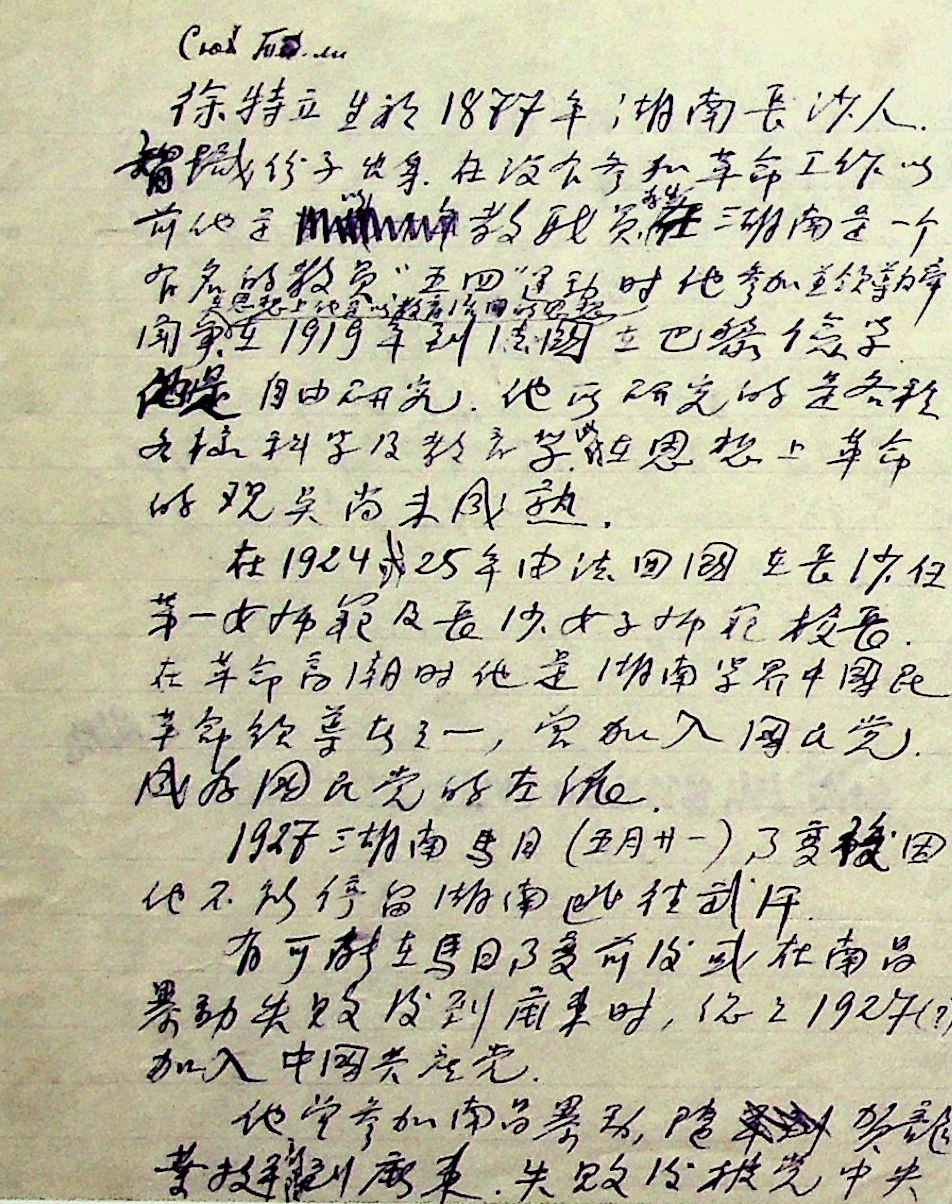 Сюй Те-ли
徐特立生於1877年湖南長沙人.
智識份子出身.在没有参加革命工作以
前他是教职員在湖南是一个
有名的教员"五四"運动时他参加並领導
思想上他是以教育救國的思想
在1919年到法國在巴黎儉学.
他是自由研究.他所研究的是各種
各樣科学及教育学.此时在思想上革命
的观点尚未成熟.
在1924或25年由法回國在長沙任
第一女师範及長沙女子师范校長.
在革命高潮时他是湖南学界中國民
革命领導者之一,曾加入國民党.
成为國民党的左派.
1927湖南馬日(五月廿一)事变後因
他不能停留湖南逃往武汗.
有可能在馬日事变前后或在南昌
暴动失败后到廣東时,总之1927(?)
加入中國共産党.
他曾参加南昌暴动,随贺龍
葉挺到廣東.失败后被党中央